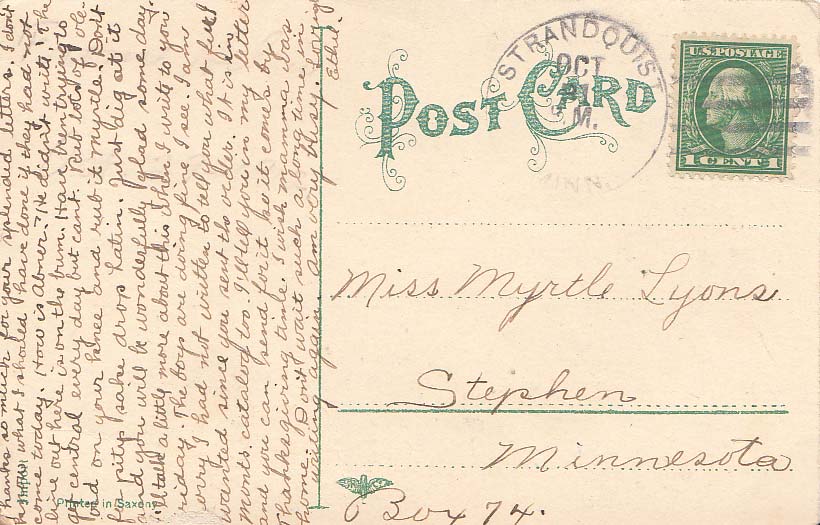 Thanks so much for your splended letters. I don't
know what I should have done if they had not
come today. How is Abner? He didn't write. The
line out here is on the bum. Have been trying to
get central every day but cant. Put lots of
on your knee and rub it myrtle. Don't
for pitys sake drop Latin. Just dig at it
and you will be wonderfully glad some day.
I'll talk a little more about this when I write to you
Friday. The boys are doing fine I see. I am
sorry I had not written to tell you what fur I
wanted since you sent the order. It is in
Monts. catalog too. I'll tell you in my letter
and you can send for it so it comes by
Thanksgiving time. I wish mamma was
home. Don't wait such a long time in
writing again. Am very busy. Lovingly
Ethel.
POST CARD
STRANDQUIST
OCT
21
M.
MINN.
U.S. POSTAGE
1 CENT 1
Miss Myrtle Lyons
Stephen
Minnesota
Box 74.
Printed in Saxony